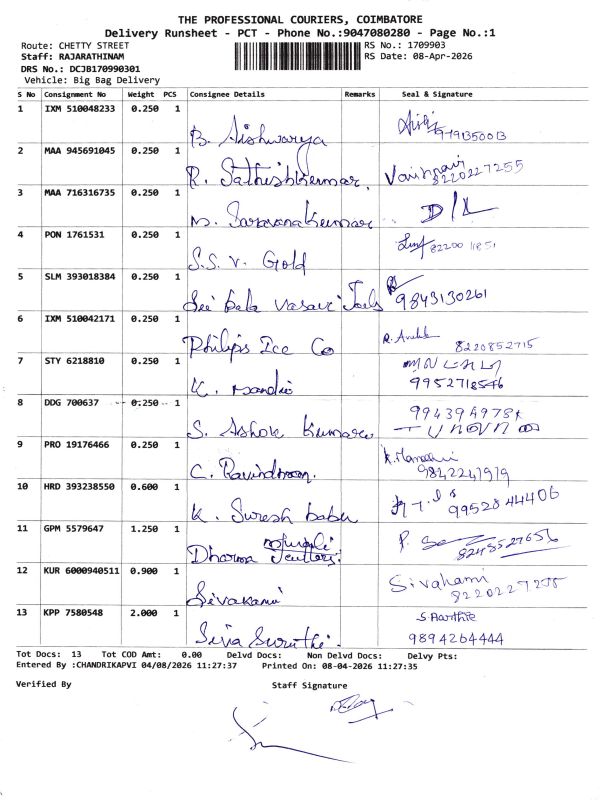 THE PROFESSIONAL COURIERS, COIMBATORE
Delivery Runsheet - PCT - Phone No.:9047080280 - Page No.:1
Route: CHETTY STREET RS No.: 1709903
Staff: RAJARATHINAM RS Date: 08-Apr-2026
DRS No.: DCJB170990301
Vehicle: Big Bag Delivery
S No Consignment No Weight PCS Consignee Details Remarks Seal & Signature
1 IXM 510048233 0.250 1 B. Aishwarya
2 MAA 945691045 0.250 1 R. Sathishkumar. Vaishnavi 8220227255
3 MAA 716316735 0.250 1 M. Saravanakumar D/L
4 PON 1761531 0.250 1 S.S. V. Gold
5 SLM 393018384 0.250 1 Sri bala vasavi Jwels 9843130261
6 IXM 510042171 0.250 1 Philips Ice Co 8220852715
7 STY 6218810 0.250 1 K. 9952718546
8 DDG 700637 0.250 1 S. Ashok Kumar
9 PRO 19176466 0.250 1 C. Ravindran. 9842241919
10 HRD 393238550 0.600 1 K. Suresh babu 9952844406
11 GPM 5579647 1.250 1 Dharma 8248527656
12 KUR 6000940511 0.900 1 Sivakami Sivakami
13 KPP 7580548 2.000 1 Siva Suruthi. S Aarthie 9894264444
Tot Docs: 13 Tot COD Amt: 0.00 Delvd Docs: Non Delvd Docs: Delvy Pts:
Entered By :CHANDRIKAPVI 04/08/2026 11:27:37 Printed On: 08-04-2026 11:27:35
Verified By Staff Signature